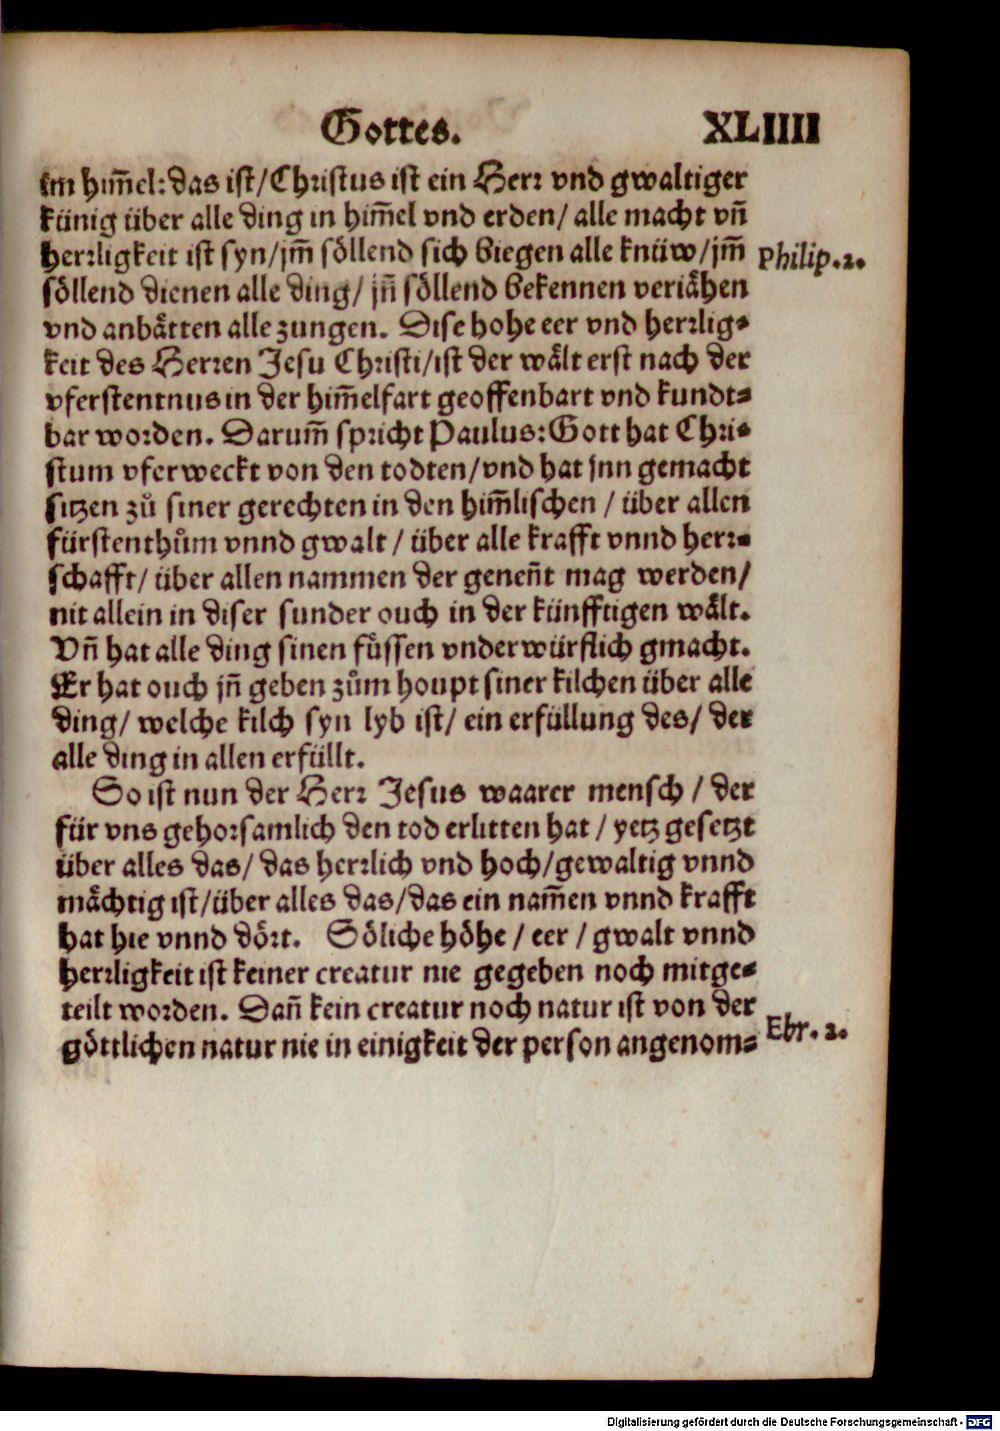 Gottes. XLIIII
im him̄el: das ist/Christus ist ein Herr vnd gwaltiger
künig über alle ding in him̄el vnd erden/ alle macht vn̄
herrligkeit ist syn/jm̄ söllend sich biegen alle knüw/jm̄ Philip.2.
söllend dienen alle ding/ jn̄ söllend bekennen veriähen
vnd anbätten alle zungen. Dise hohe eer vnd herrlig⸗
keit des Herren Jesu Christi/ist der wält erst nach der
vferstentnus in der him̄elfart geoffenbart vnd kundt⸗
bar worden. Darum̄ spricht Paulus: Gott hat Chri⸗
stum vferweckt von den todten/vnd hat jnn gemacht
sitzen zů siner gerechten in den him̄lischen / über allen
fürstenthům vnnd gwalt / über alle krafft vnnd herr⸗
schafft/ über allen nammen der genen̄t mag werden/
nit allein in diser sunder ouch in der künfftigen wält.
Vn̄ hat alle ding sinen füssen vnderwürflich gmacht.
Er hat ouch jn̄ geben zům houpt siner kilchen über alle
ding/ welche kilch syn lyb ist/ ein erfüllung des/ der
alle ding in allen erfüllt.
So ist nun der Herr Jesus waarer mensch / der
für vns gehorsamlich den tod erlitten hat / yetz gesetzt
über alles das/ das herrlich vnd hoch/gewaltig vnnd
mächtig ist/über alles das/das ein nam̄en vnnd krafft
hat hie vnnd dört. Söliche höhe / eer / gwalt vnnd
herrligkeit ist keiner creatur nie gegeben noch mitge⸗
teilt worden. Dan̄ kein creatur noch natur ist von der
göttlichen natur nie in einigkeit der person angenom⸗ Ebr. 2.
Digitalisierung gefördert durch die Deutsche Forschungsgemeinschaft - DFG